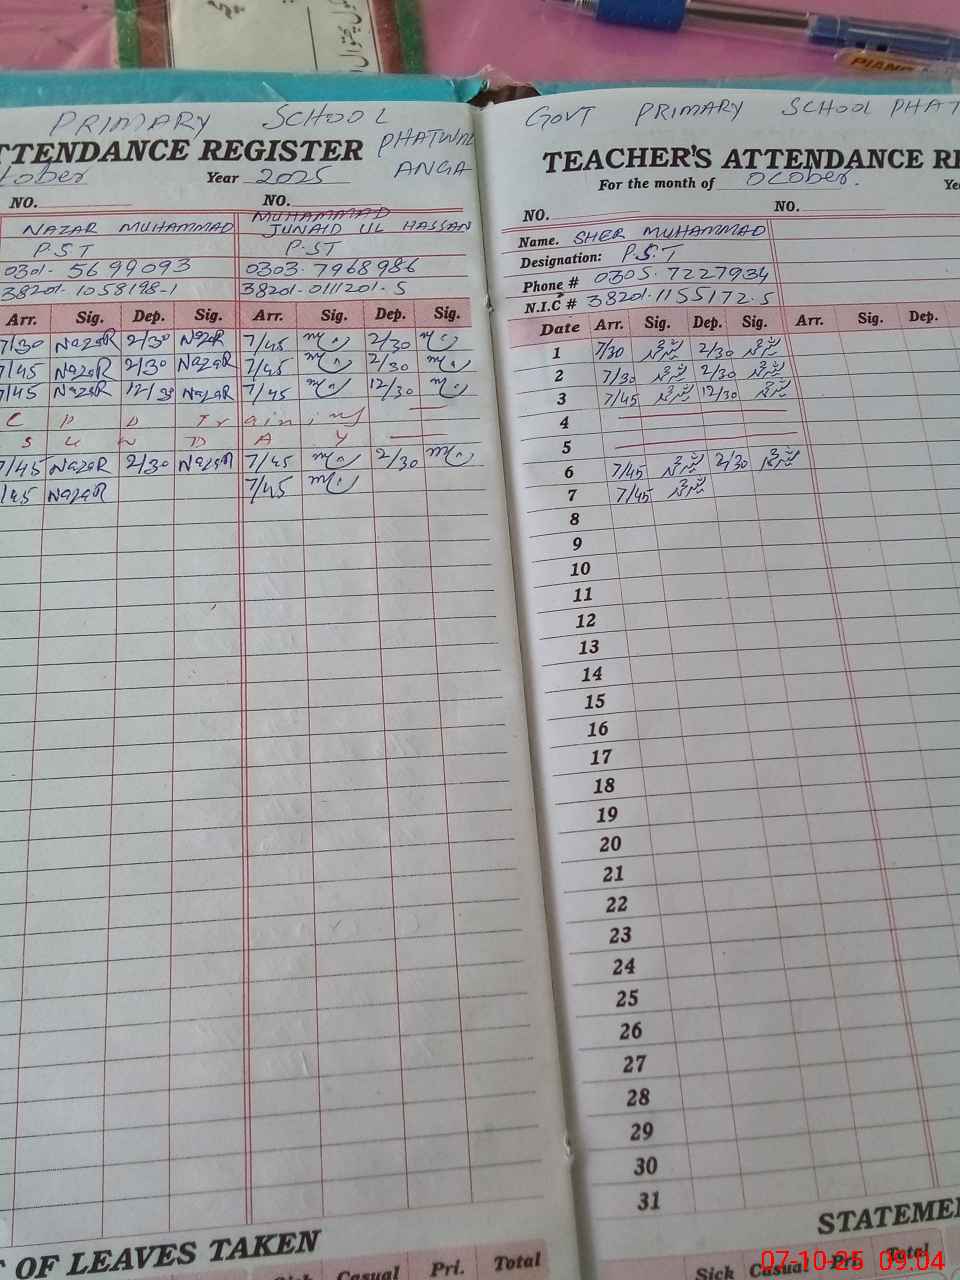 PRIMARY SCHOOL
TTENDANCE REGISTER PHATWAL
tober Year 2025 ANGA
NO. NO.
NAZAR MUHAMMAD MUHAMMAD JUNAID UL HASSAN
P.S.T P.S.T
0301-5699093 0303.7968986
38201-1058198-1 38201-0111201-5
Arr. Sig. Dep. Sig. Arr. Sig. Dep. Sig.
7/30 NazaR 2/30 NazaR 7/45 2/30
7/45 NazaR 2/30 NazaR 7/45 2/30
7/45 NazaR 12/30 NazaR 7/45 12/30
C P D Training
S U N D A Y
7/45 NazaR 2/30 NazaR 7/45 2/30
7/45 NazaR 7/45
T OF LEAVES TAKEN
Sick Casual Pri. Total
GOVT PRIMARY SCHOOL PHAT
TEACHER'S ATTENDANCE RE
For the month of October. Ye
NO. NO.
Name. SHER MUHAMMAD
Designation: P.S.T
Phone # 0305.7227934
N.I.C # 38201.1155172.5
Date Arr. Sig. Dep. Sig. Arr. Sig. Dep.
1 7/30 2/30
2 7/30 2/30
3 7/45 12/30
4
5
6 7/45 2/30
7 7/45
8
9
10
11
12
13
14
15
16
17
18
19
20
21
22
23
24
25
26
27
28
29
30
31
STATEME
Sick Casual Pri. Total
PIANO
07-10-25 09:04